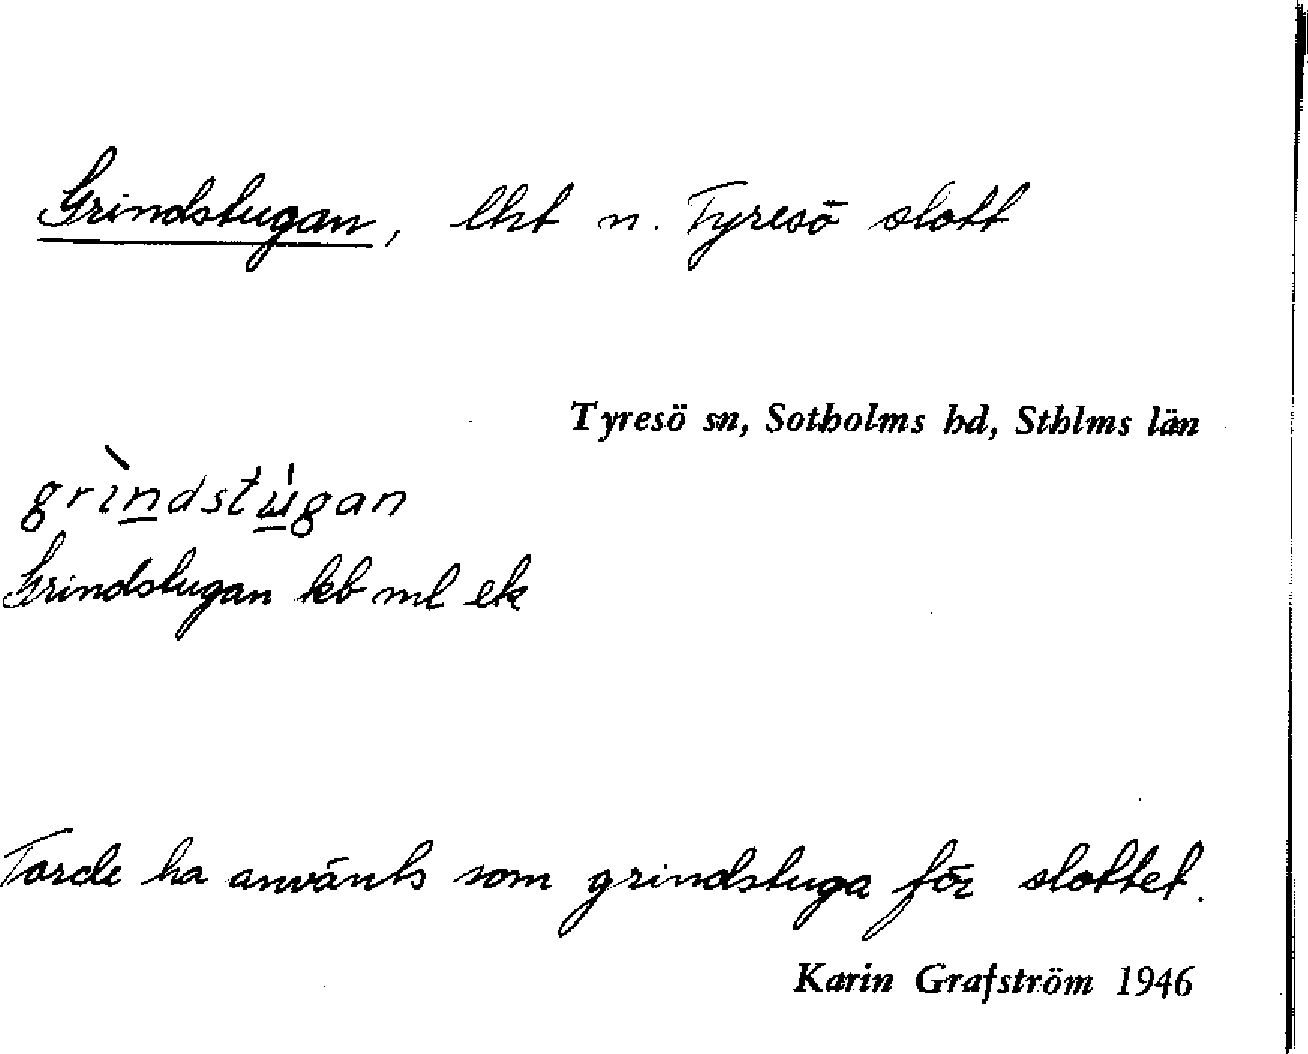 Grindstugan, lht n. Tyresö slott
Tyresö sn, Sotholms hd, Sthlms län
grìndstúgan
Grindstugan kb ml ek
Torde ha använts som grindstuga för slottet.
Karin Grafström 1946